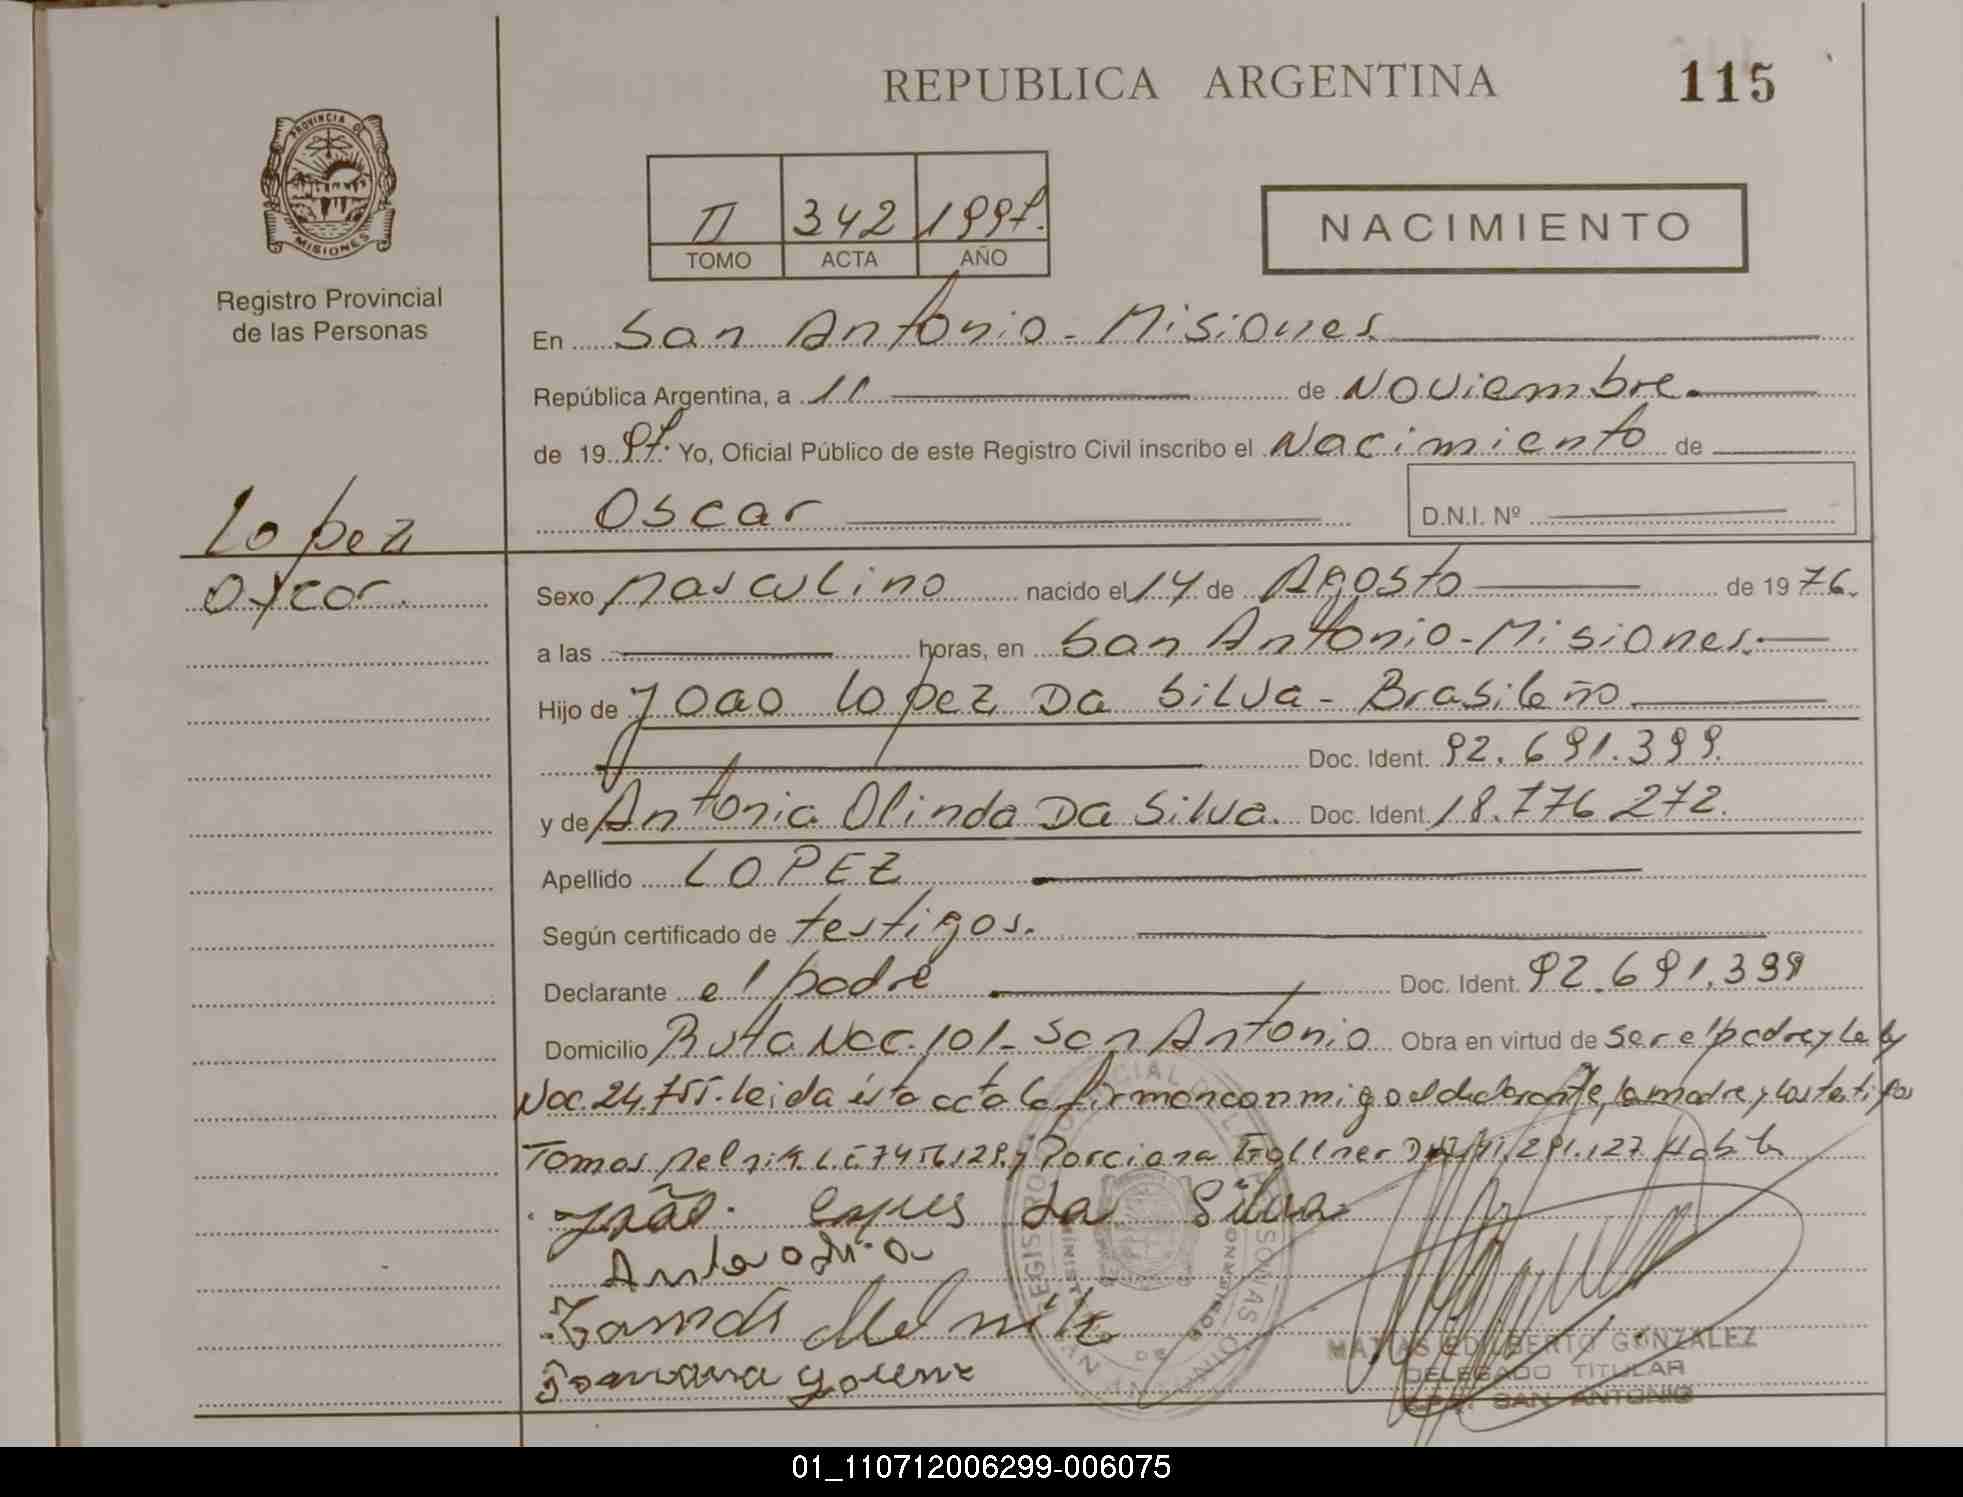 REPUBLICA ARGENTINA
115
PROVINCIA DE
MISIONES
Registro Provincial
de las Personas
II 342 1997.
TOMO ACTA AÑO
NACIMIENTO
En San Antonio - Misiones
República Argentina, a 11 de Noviembre.
de 19 97. Yo, Oficial Público de este Registro Civil inscribo el Nacimiento de
Oscar
D.N.I. Nº
Lopez
Oscar.
Sexo Masculino nacido el 14 de Agosto de 1976.
a las horas, en San Antonio - Misiones.
Hijo de Joao Lopez Da Silva - Brasileño
Doc. Ident. 92.691.399.
y de Antonia Olinda Da Silva. Doc. Ident. 18.776 272.
Apellido LOPEZ
Según certificado de testigos.
Declarante el padre Doc. Ident. 92.691.399
Domicilio Ruta Nac. 101 - San Antonio Obra en virtud de ser el padre y la ley
Nac. 24.755. leida ésta acta la firman conmigo el declarante, la madre y los testigos
Tomas Melnik L.E. 7456129. y Porciana
João. Da Silva
Tomas Melnik
MATIAS EDILBERTO GONZALEZ
DELEGADO TITULAR
SAN ANTONIO
01_110712006299-006075